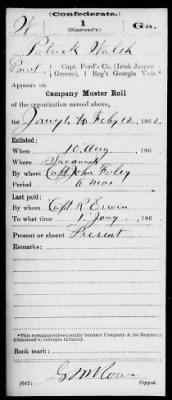 (Confederate.)
W 1 Ga.
(Olmstead's.)
Patrick Walsh
Capt Ford's Co. (Irish Jasper
Greens), 1 Reg't Georgia Vols*
Appears on
Company Muster Roll
of the organization named above,
for Jany 1 to Feby 12, 1862.
Enlisted:
When 10 Aug, 186
Where Savannah
By whom Capt John Foley
Period 6 mos
Last paid:
By whom Capt R Erwin
To what time 1 Jany, 186
Present or absent Present
Remarks:
*This company subsequently became Company A, 1st Regiment
(Olmstead's) Georgia Infantry.
Book mark:
(642) Copyist.